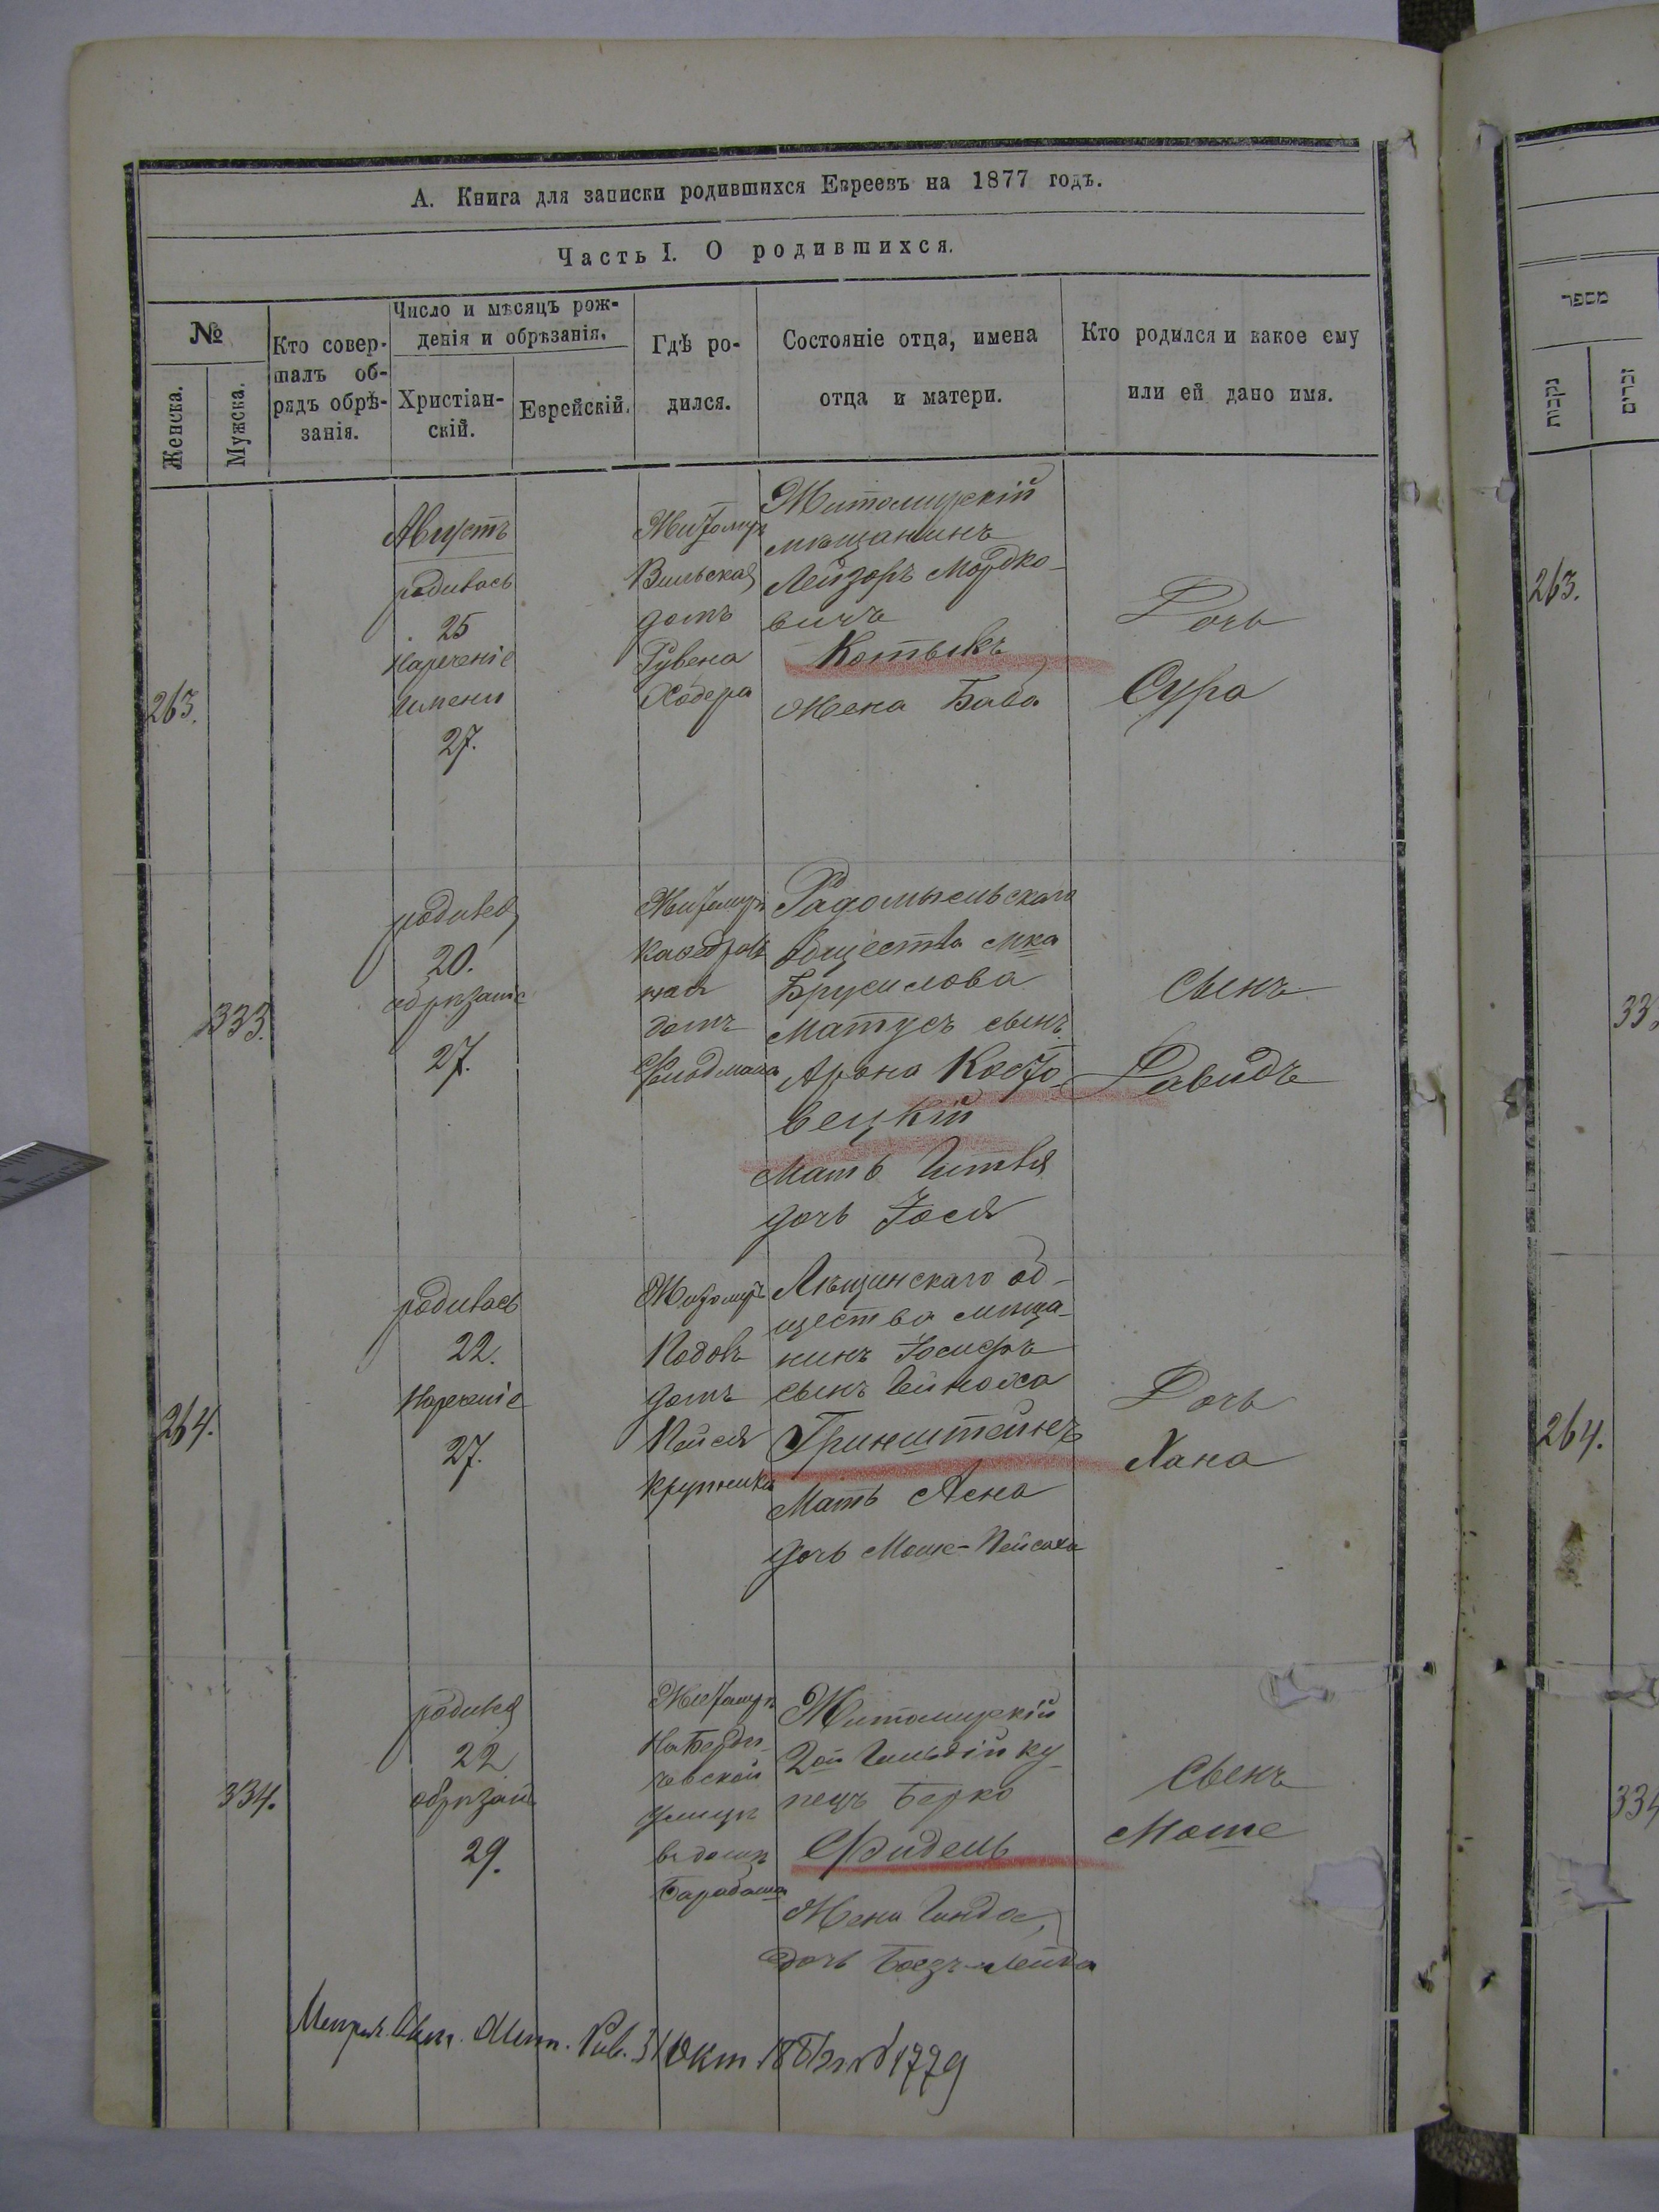 А. Книга для записки родившихся Евреевъ на 1877 годъ.
Часть I. О родившихся.
№
Женска.
Мужска.
Кто совер-
шалъ об-
рядъ обрѣ-
занія.
Число и мѣсяцъ рож-
денія и обрѣзанія.
Христіан-
скій.
Еврейскій.
Гдѣ ро-
дился.
Состояніе отца, имена
отца и матери.
Кто родился и какое ему
или ей дано имя.
263.
Августъ
родилась
25
нареченіе
имени
27.
Житомиръ
Вильская
домъ
Рувена
Ходера
Житомирскій
мѣщанинъ
Лейзоръ Мордко-
вичъ
Котыкъ
Жена Баба
Дочь
Сура
333.
родился
20.
обрѣзаніе
27.
Житомиръ
Каѳедраль
ная
домъ
Фельдмана
Радомысльскаго
общества м-ка
Брусилова
Матусъ сынъ
Арона
вецкій
Мать Гитля
дочь Іося
Сынъ
Давидъ
264.
родилась
22.
Нареченіе
27.
Житомиръ
домъ
Пейся
Крупника
Лѣщинскаго об-
щества мѣща-
нинъ Іосифъ
сынъ
Гринштейнъ
Мать Асна
дочь Моше-Пейсаха
Дочь
Хана
334.
родился
22
обрѣзан
29.
Житомиръ
На Берди-
чевской
улицѣ
въ домѣ
Барабаша
Житомирскій
2ой Гильдіи ку
пецъ Берко
Фидель
Жена Гинда,
дочь
Сынъ
Моше
מספר
נקבות
זכרים
263.
33
264.
334